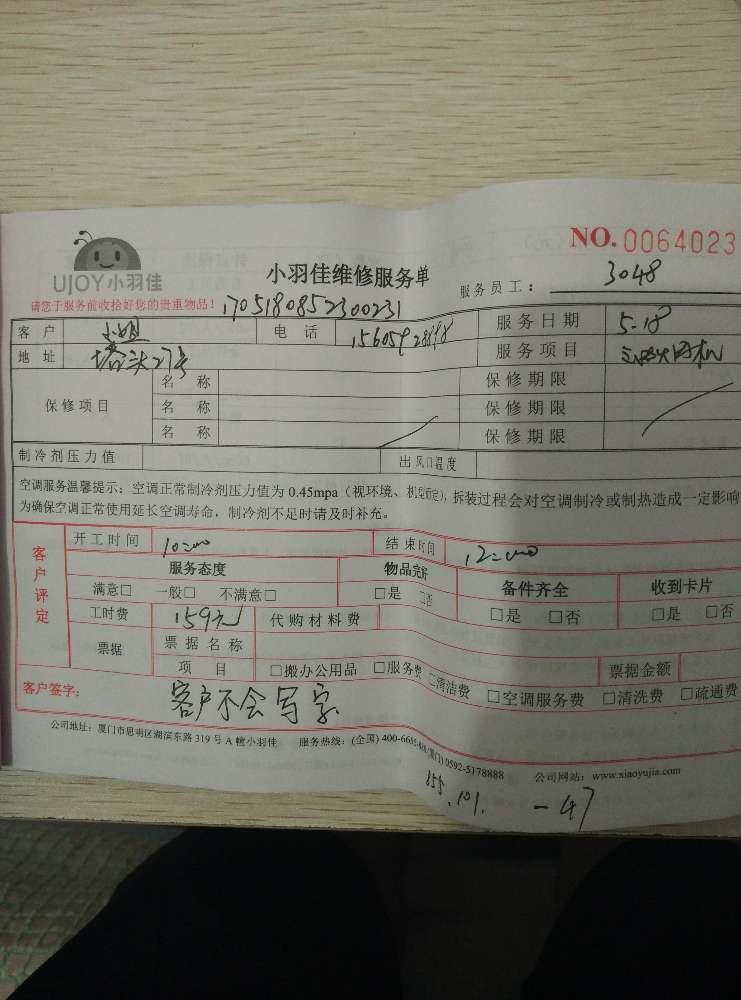 UJOY小羽佳
小羽佳维修服务单
NO. 0064023
服务员工: 3048
请您于服务前收拾好您的贵重物品! 1705180852300231
客户 小姐 电话 服务日期 5-18
地址 塔头27号 服务项目
保修项目 名称 保修期限
名称 保修期限
名称 保修期限
制冷剂压力值 出风口温度
空调服务温馨提示:空调正常制冷剂压力值为0.45mpa(视环境、机型而定),拆装过程会对空调制冷或制热造成一定影响
为确保空调正常使用延长空调寿命,制冷剂不足时请及时补充。
客户评定
开工时间 10:00 结束时间 12:00
服务态度 物品完好 备件齐全 收到卡片
满意□ 一般□ 不满意□ □是 □否 □是 □否 □是 □否
工时费 159元 代购材料费
票据 票据名称
项目 □搬办公用品 □服务费 □清洁费 □空调服务费 □清洗费 □疏通费 票据金额
客户签字: 客户不会写字
公司地址:厦门市思明区湖滨东路319号A幢小羽佳 服务热线:(全国)400-6655- (厦门)0592-5178888 公司网站:www.xiaoyujia.com
155.101. -47